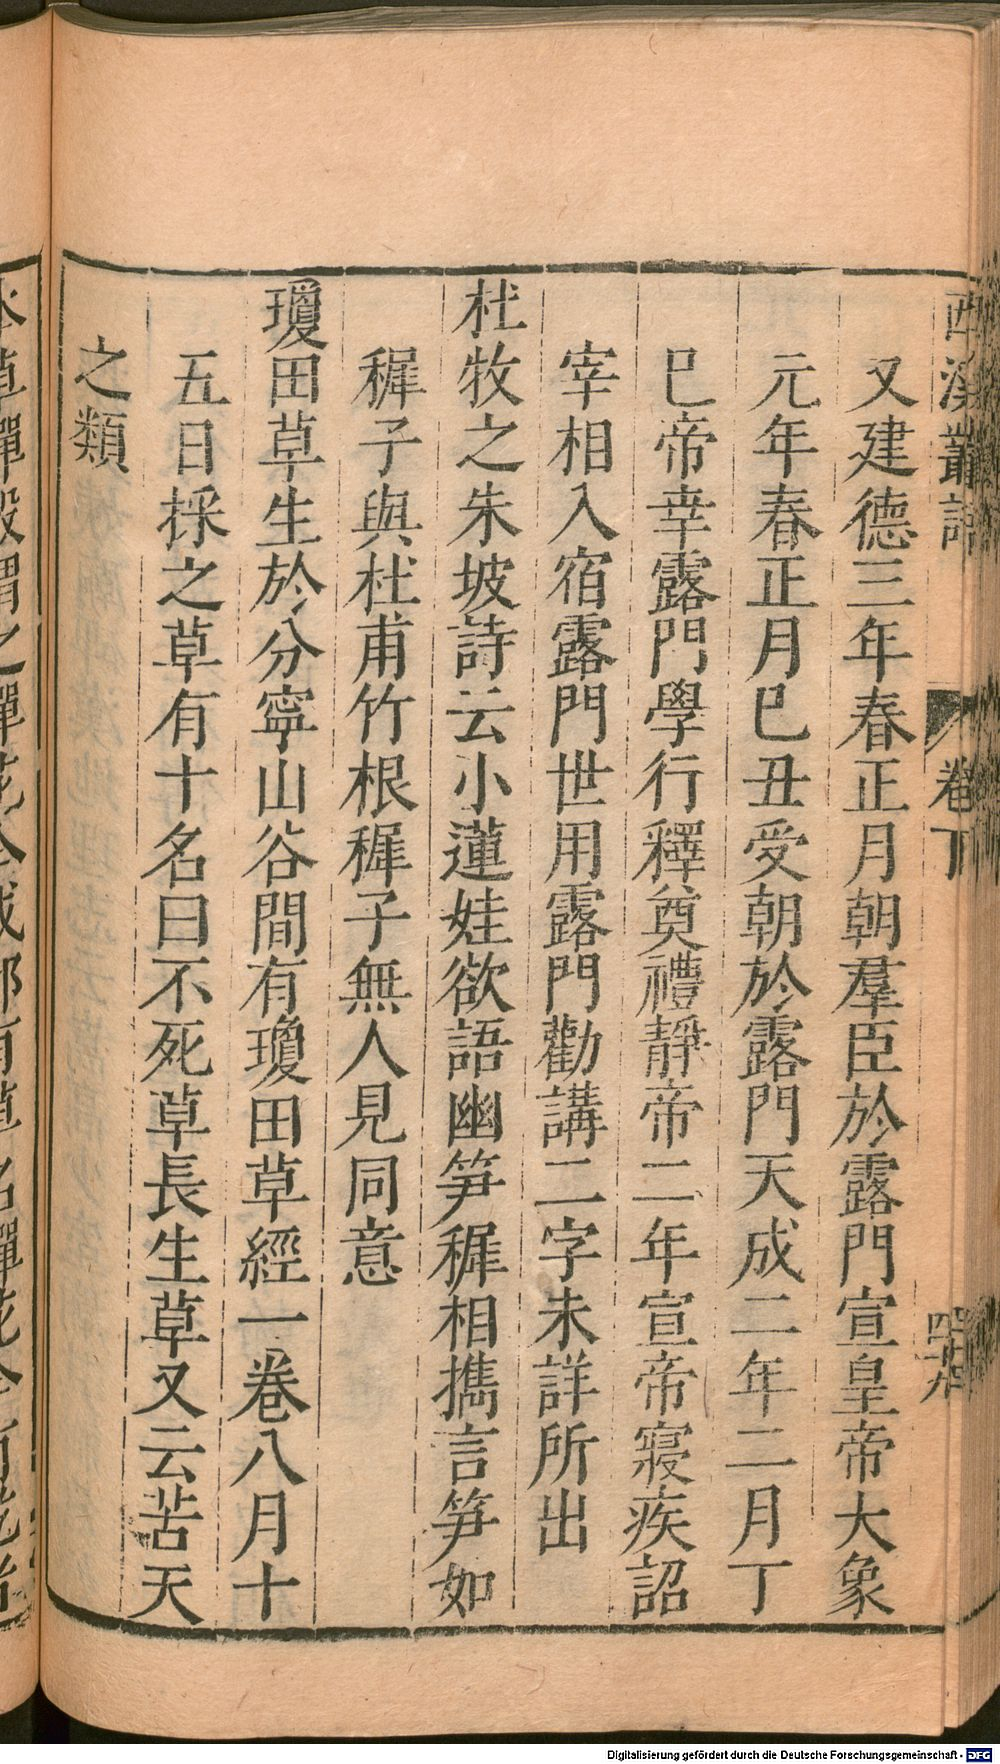 西溪叢語 卷下
又建德三年春正月朝羣臣於露門宣皇帝大象
元年春正月巳丑受朝於露門天成二年二月丁
巳帝幸露門學行釋奠禮靜帝二年宣帝寢疾詔
宰相入宿露門世用露門勸講二字未詳所出
杜牧之朱坡詩云小蓮娃欲語幽笋稺相攜言笋如
稺子與杜甫竹根稺子無人見同意
瓊田草生於分寧山谷間有瓊田草經一卷八月十
五日採之草有十名曰不死草長生草又云苦天
之類
Digitalisierung gefördert durch die Deutsche Forschungsgemeinschaft - DFG